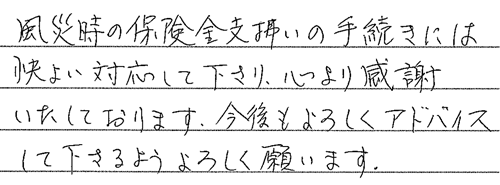 風災時の保険金支払いの手続きには
快よい対応して下さり、心より感謝
いたしております。今後もよろしくアドバイス
して下さるようよろしく願います。